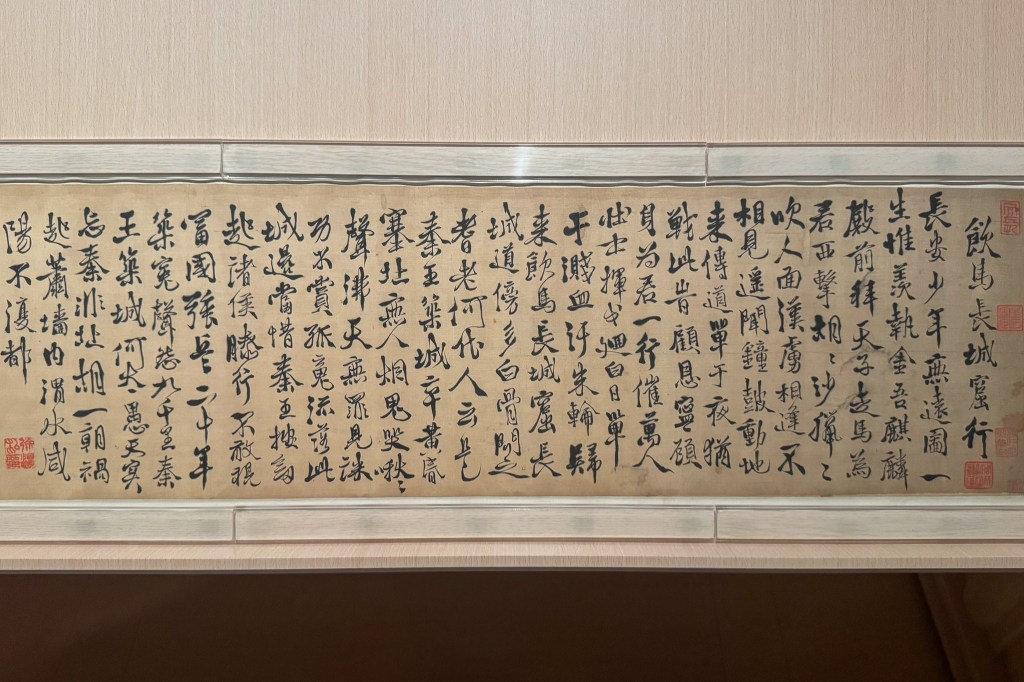 飲馬長城窟行
長安少年無遠圖一
生惟羨執金吾麒麟
殿前拜天子走馬為
君西擊胡〻沙獵〻
吹人面漢虜相逢不
相見遥聞鐘鼓動地
来傳道單于夜猶
戰此旹顧恩寧顧
身為君一行催萬人
壮士揮戈廻白日單
于濺血汙朱輪歸
来飲馬長城窟長
城道傍多白骨問之
耆老何代人云是
秦王築城卒黄昏
塞北無人烟鬼哭啾〻
聲沸天無罪見誅
功不賞孤魂流落此
城邊當惜秦王按劍
起諸侯膝行不敢視
富國強兵二十年
築冤聲愁九千里秦
王築城何太愚天実
忘秦非北胡一朝禍
起蕭墻内渭水咸
陽不復都